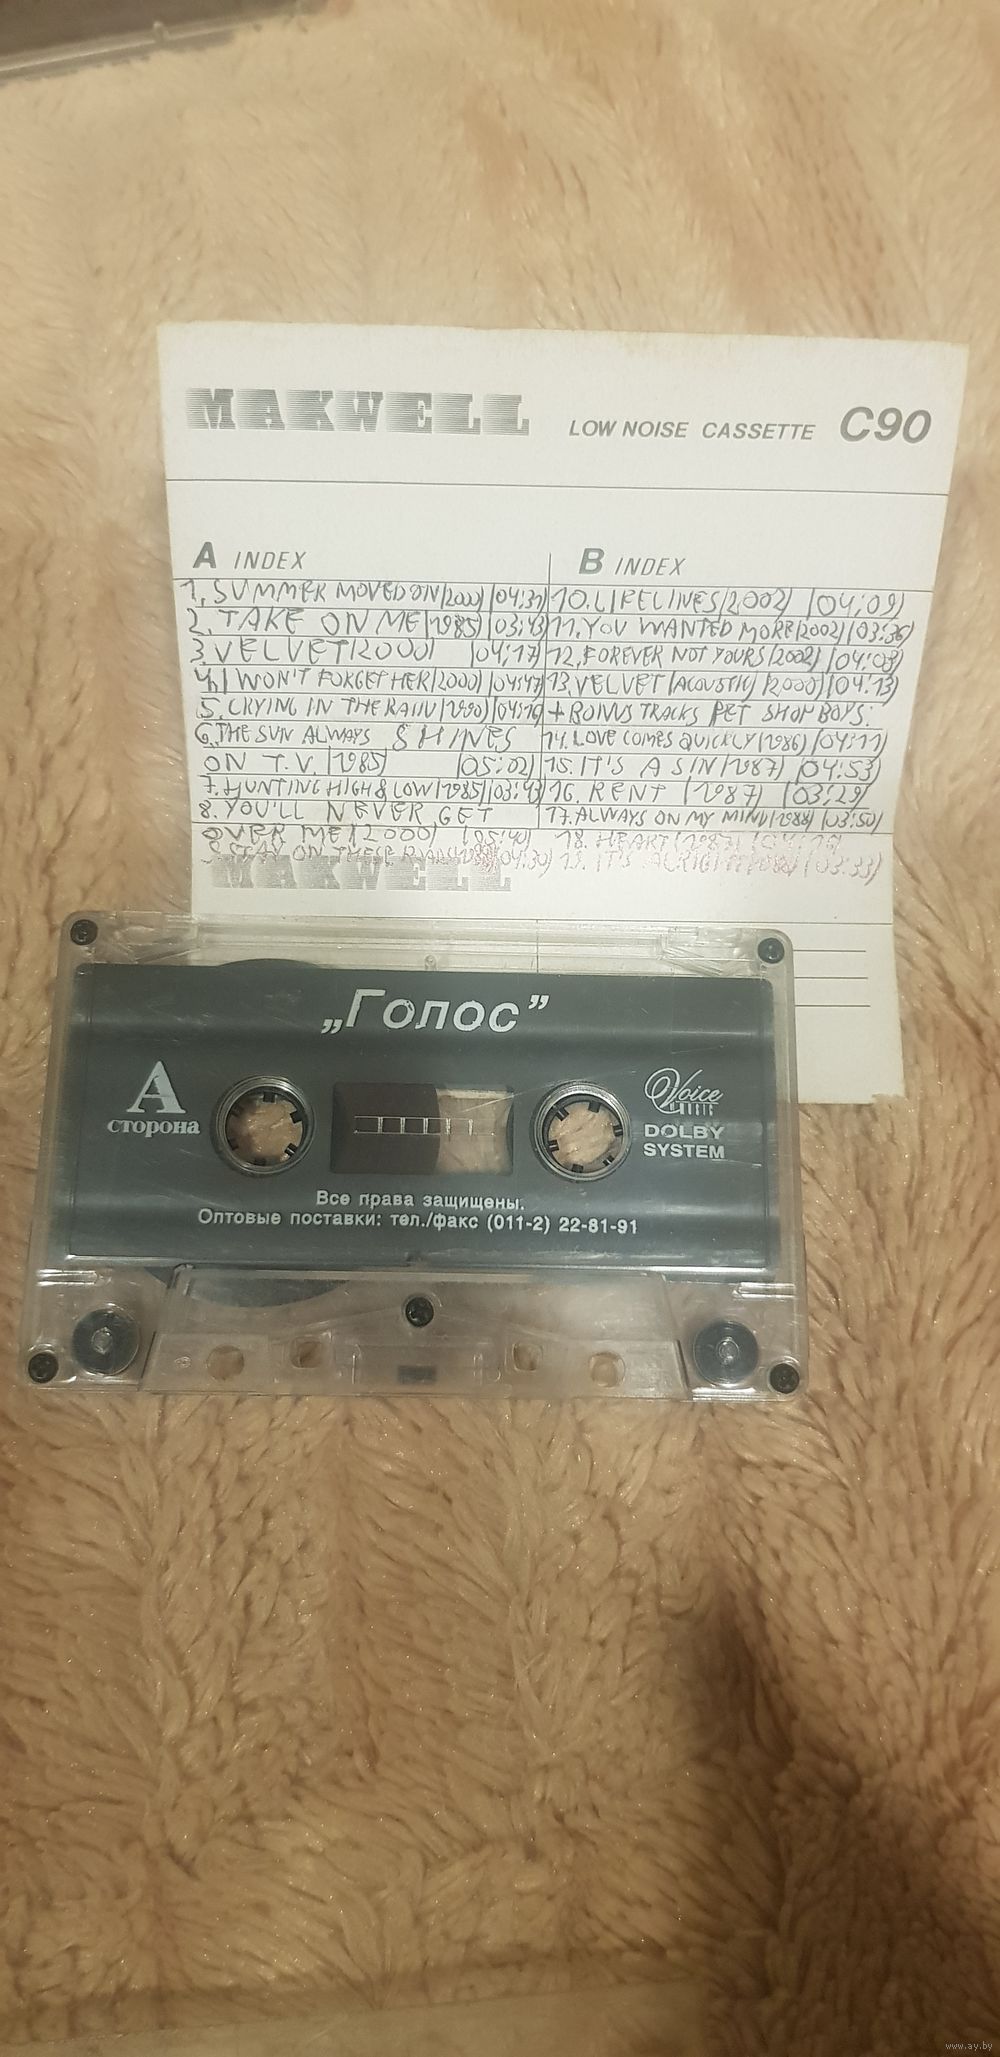 MAKWELL LOW NOISE CASSETTE C90
A INDEX
1. SUMMER MOVED ON (2000) (04:37)
2. TAKE ON ME (1985) (03:43)
3. VELVET (2000) (04:17)
4. I WON'T FORGET HER (2000) (04:47)
5. CRYING IN THE RAIN (1990)
6. THE SUN ALWAYS SHINES
ON T.V. (1985) (05:02)
7. HUNTING HIGH & LOW (1985) (03:43)
8. YOU'LL NEVER GET
OVER ME (2000) (05:40)
STAY ON THESE ROADS (04:30)
B INDEX
10. LIFELINES (2002) (04:09)
11. YOU WANTED MORE (2002) (03:36)
12. FOREVER NOT YOURS (2002) (04:03)
13. VELVET (ACOUSTIC) (2000) (04:13)
+ BONUS TRACKS PET SHOP BOYS:
14. LOVE COMES QUICKLY (1986) (04:11)
15. IT'S A SIN (1987) (04:53)
16. RENT (1987) (03:29)
17. ALWAYS ON MY MIND (1988) (03:50)
18. HEART (1987)
19. IT'S ALRIGHT (03:33)
MAKWELL
„Голос”
А
сторона
Voice
MUSIC
DOLBY
SYSTEM
Все права защищены.
Оптовые поставки: тел./факс (011-2) 22-81-91
www.ay.by